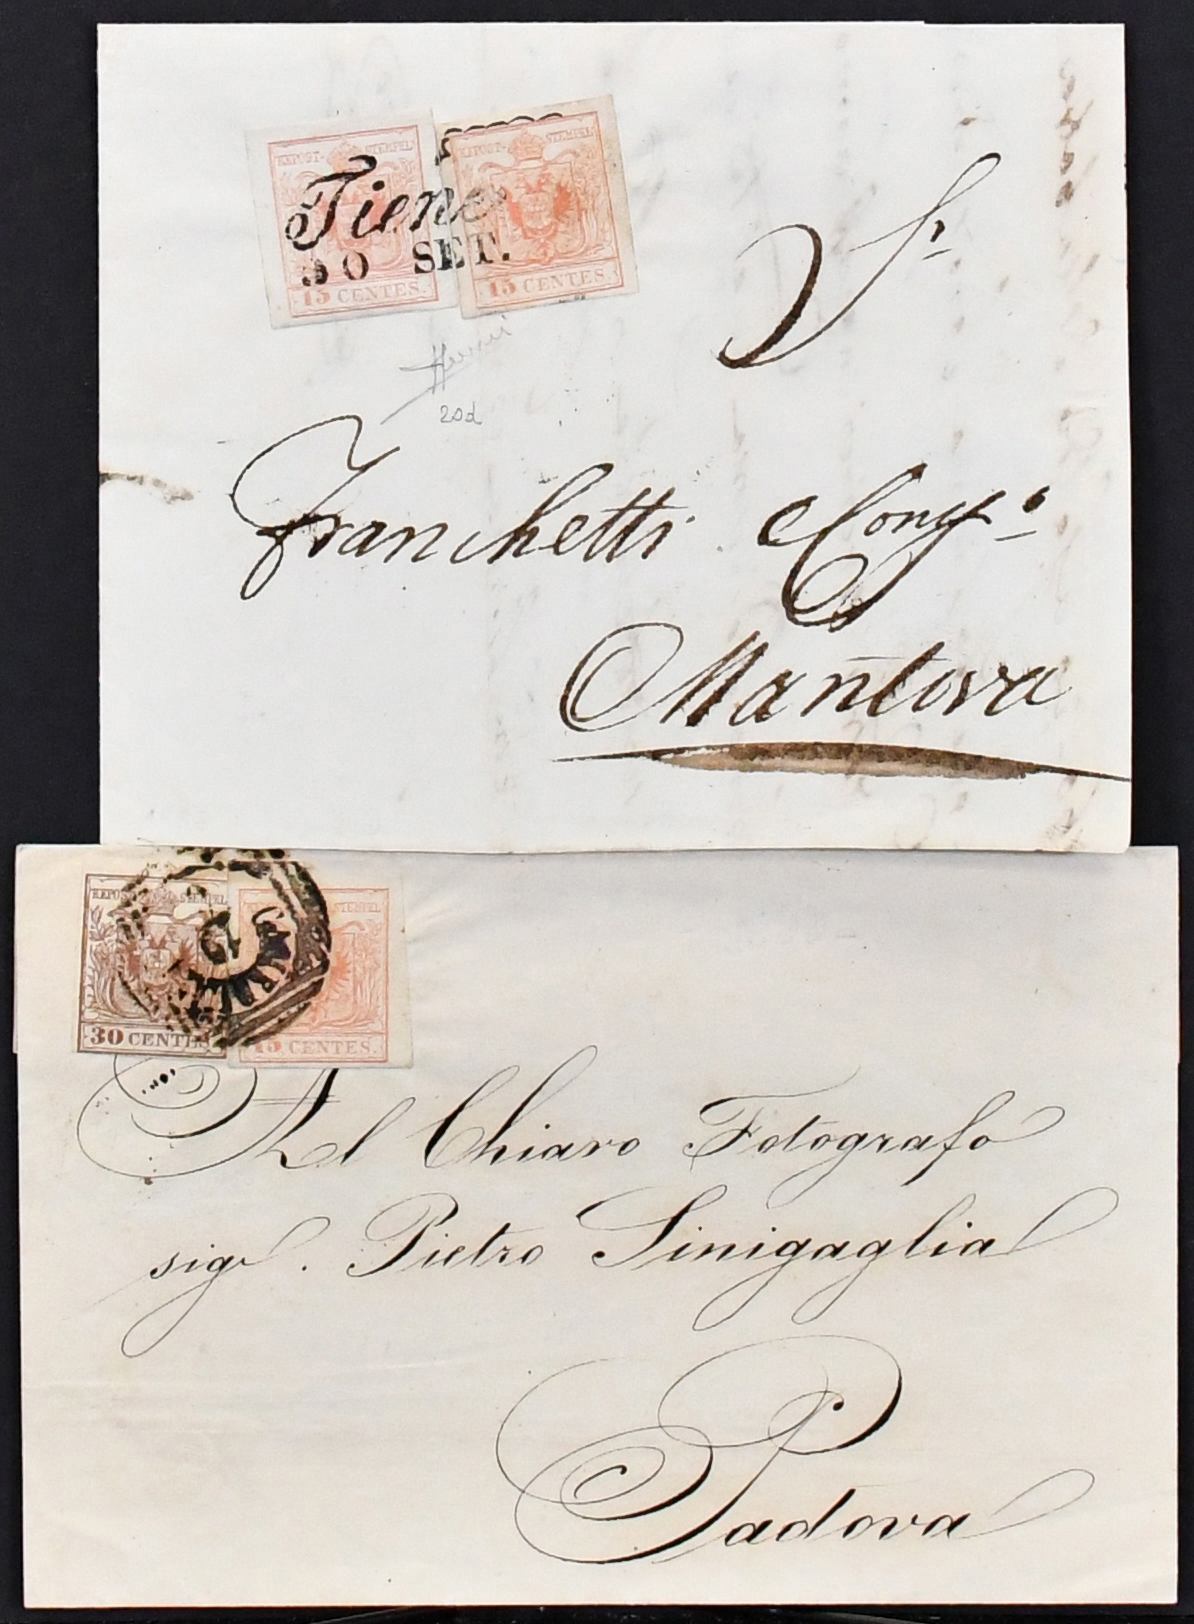 KKPOST-STEMPEL KKPOST-STEMPEL
Tiene
30 SET.
15 CENTES. 15 CENTES.
20d
Sr.
Franchetti e Compi.
Mantova
KKPOST-STEMPEL STEMPEL
19
30 CENTES. 15 CENTES.
Al Chiaro Fotografo
sigr. Pietro Sinigaglia
Padova